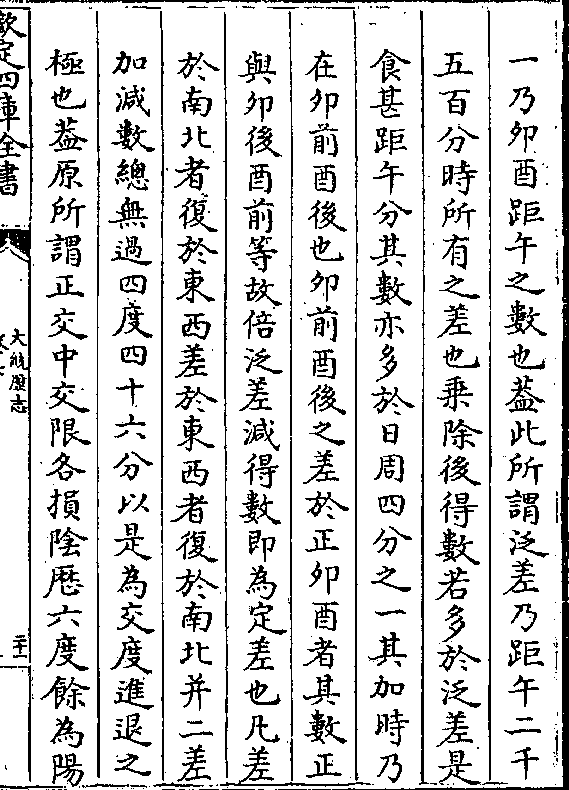 一乃卯酉距午之數也葢此所謂泛差乃距午二千
五百分時所有之差也乗除後得數若多於泛差是
食甚距午分其數亦多於日周四分之一其加時乃
在卯前酉後也卯前酉後之差於正卯酉者其數正
與卯後酉前等故倍泛差減得數即為定差也凡差
於南北者復於東西差於東西者復於南北并二差
加減數總無過四度四十六分以是為交度進退之
極也葢原所謂正交中交限各損陰厯六度餘為陽
欽定四庫全書
大統歴志
二十一